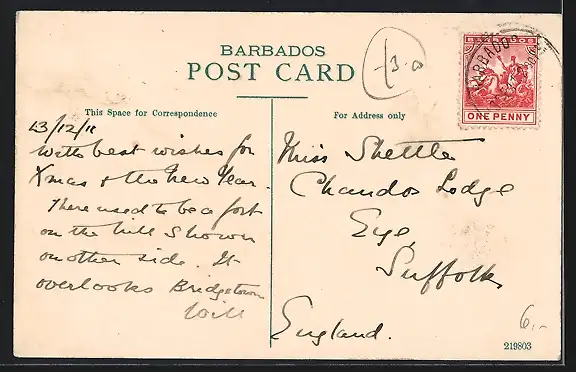 BARBADOS
POST CARD
This Space for Correspondence
For Address only
13/12/11
With best wishes for
Xmas & the New Year.
There used to be a fort
on the hill shown
on other side. It
overlooks Bridgetown
Will
Miss Shettle
Chandos Lodge
Eye,
Suffolk
England.
BARBADOS
ONE PENNY
BARBADOS
6.-
219803